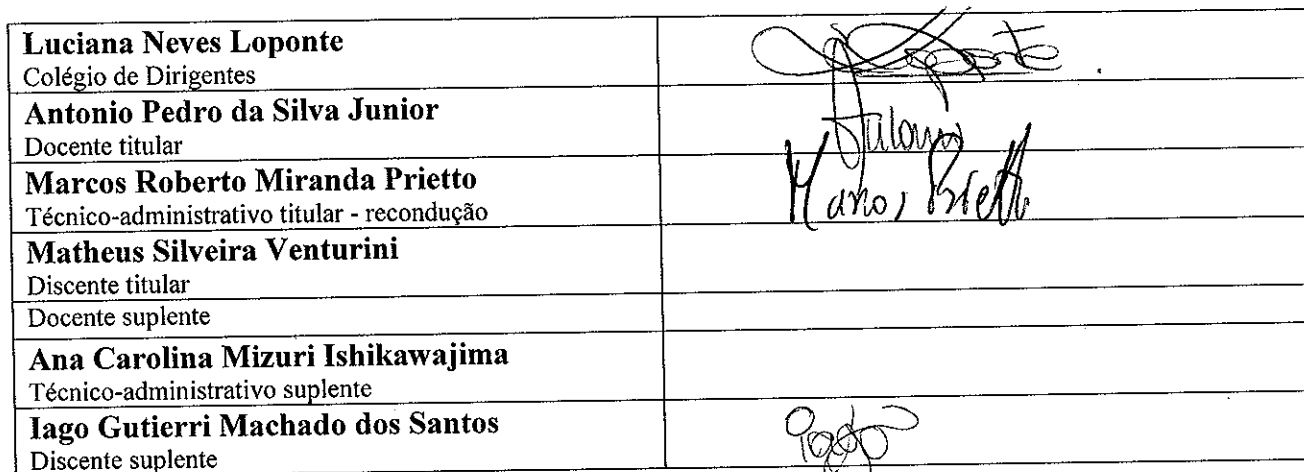 Luciana Neves Loponte
Colégio de Dirigentes
Antonio Pedro da Silva Junior
Docente titular
Antonio
Marcos Roberto Miranda Prietto
Técnico-administrativo titular - recondução
Marcos Prietto
Matheus Silveira Venturini
Discente titular
Docente suplente
Ana Carolina Mizuri Ishikawajima
Técnico-administrativo suplente
Iago Gutierri Machado dos Santos
Discente suplente